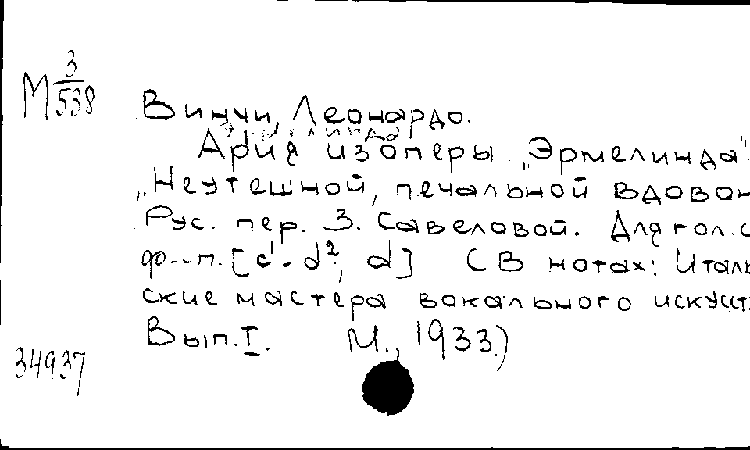 М 3/538
Винчи, Леонардо.
Ария из оперы „Эрмелинда".
„Неутешной, печальной вдово
Рус. пер. З. Савеловой. Для гол. с
ф.-п. [c¹-d², d] (В нотах: Италь
ские мастера вокального искусст
Вып. I. М., 1933.)
34937